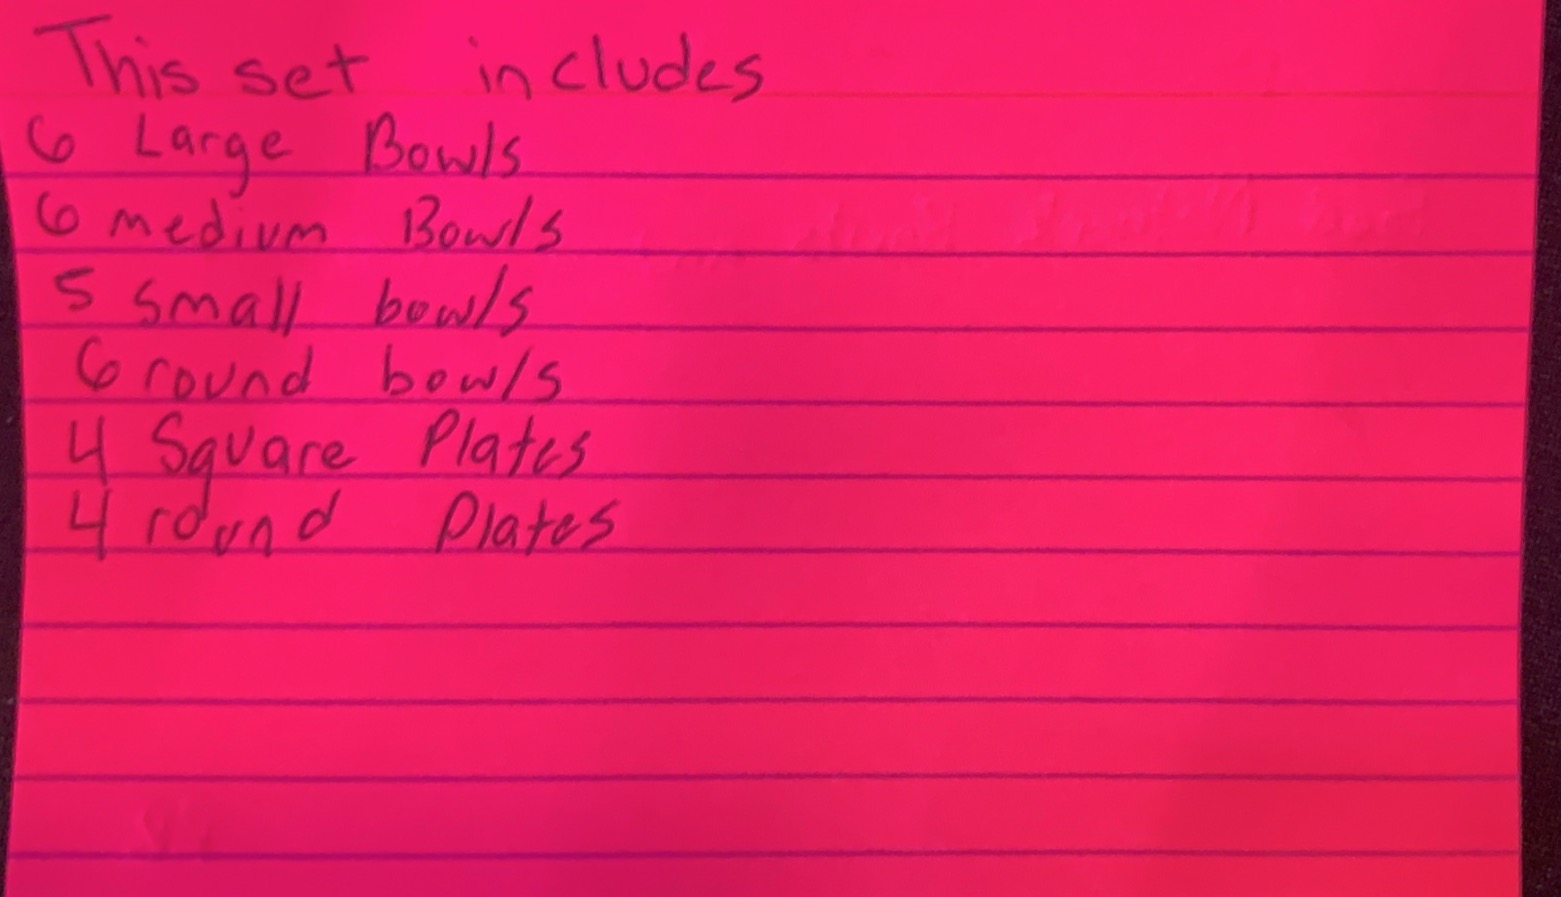 This set includes
6 Large Bowls
6 medium Bowls
5 small bowls
6 round bowls
4 Square Plates
4 round Plates